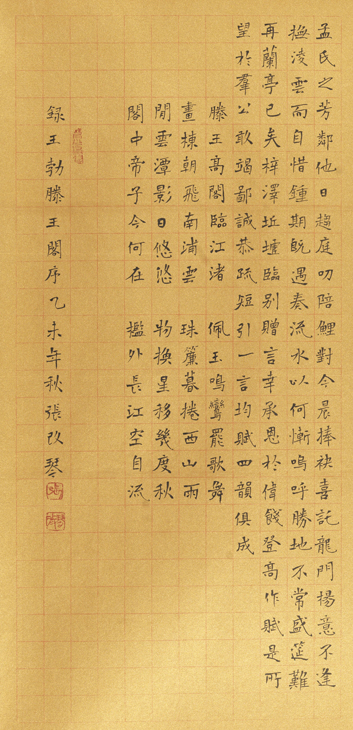 孟氏之芳鄰他日趨庭叨陪鯉對今晨捧袂喜託龍門楊意不逢
撫淩雲而自惜鍾期既遇奏流水以何慚嗚呼勝地不常盛筵難
再蘭亭已矣梓澤坵墟臨别贈言幸承恩於偉餞登高作賦是所
望於羣公敢竭鄙誠恭疏短引一言均賦四韻俱成
滕王高閣臨江渚 佩玉鳴鸞罷歌舞
畫棟朝飛南浦雲 珠簾暮捲西山雨
閒雲潭影日悠悠 物換星移幾度秋
閣中帝子今何在 檻外長江空自流
録王勃滕王閣序乙未年秋張改琴